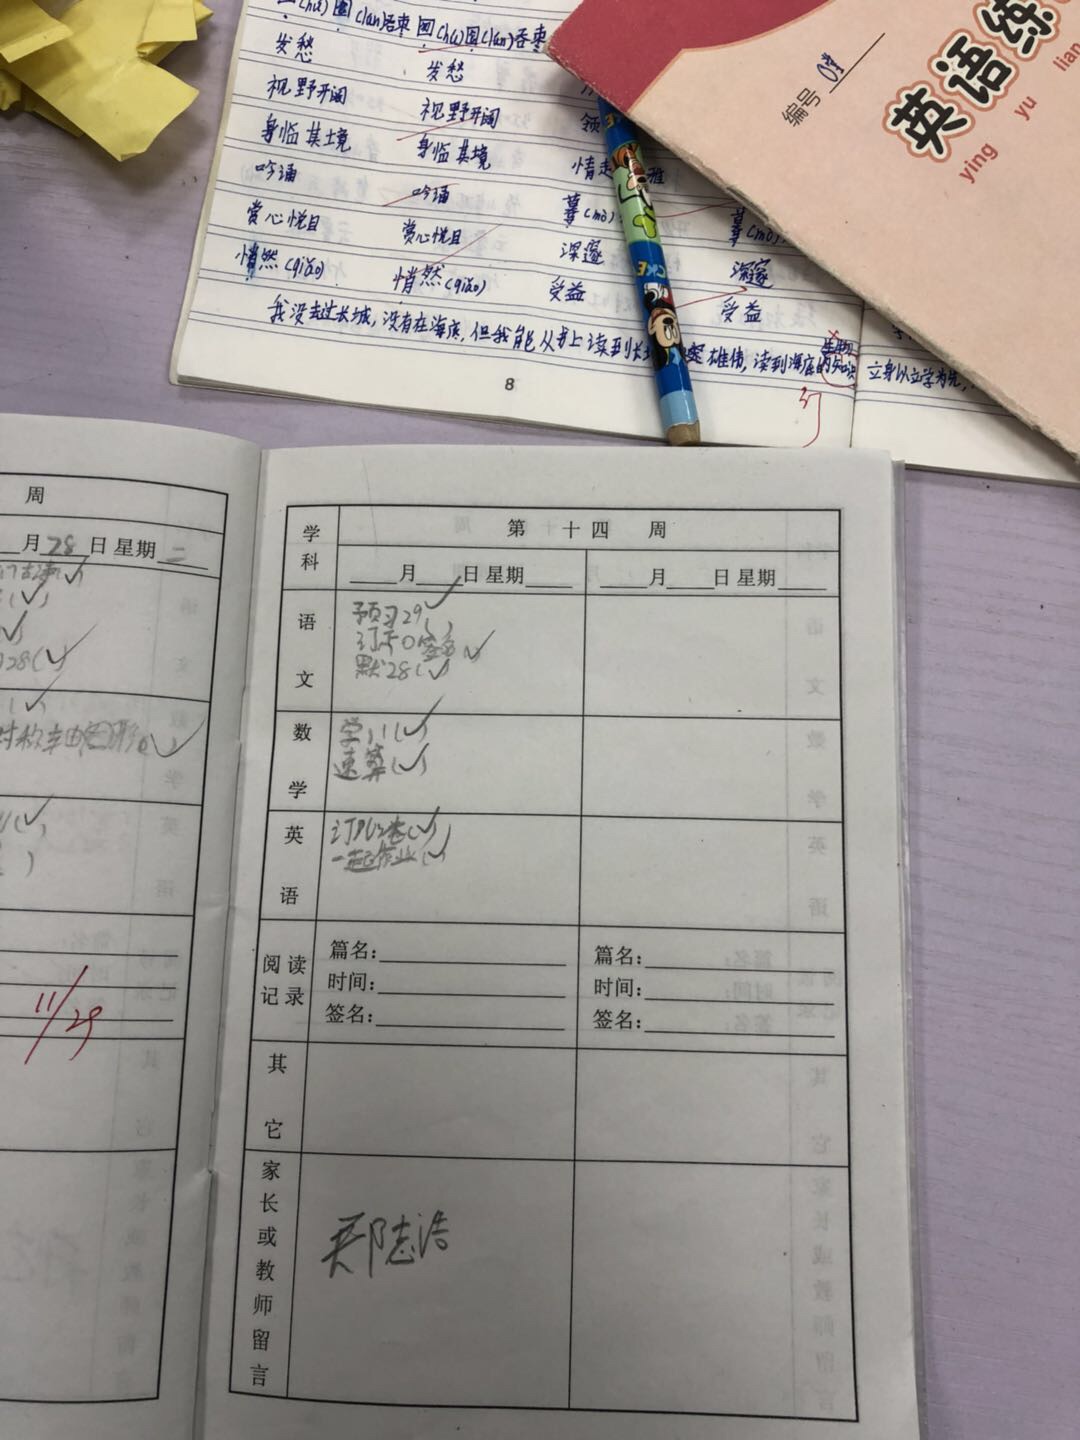 囫(hú)囵(lún)吞枣 囫(hú)囵(lún)吞枣
发愁 发愁
视野开阔 视野开阔
身临其境 身临其境
吟诵 吟诵
赏心悦目 赏心悦目
悄然(qiǎo) 悄然(qiǎo)
领
情走 雅
深邃 深邃
受益 受益
我没去过长城,没有在海底,但我能从书上读到长 雄伟,读到海底的知识
立身以立学为先,
8
编号 04
英语练
ying yu lian
周
月28日星期二
28(✓)
对称
11/29
学科
第十四周
月 日 星期
月 日 星期
语文
预习29(✓)
签名
默28(✓)
数学
学 (✓)
速算(✓)
英语
一起作业(✓)
阅读记录
篇名:
时间:
签名:
篇名:
时间:
签名:
其它
家长或教师留言
郑志浩